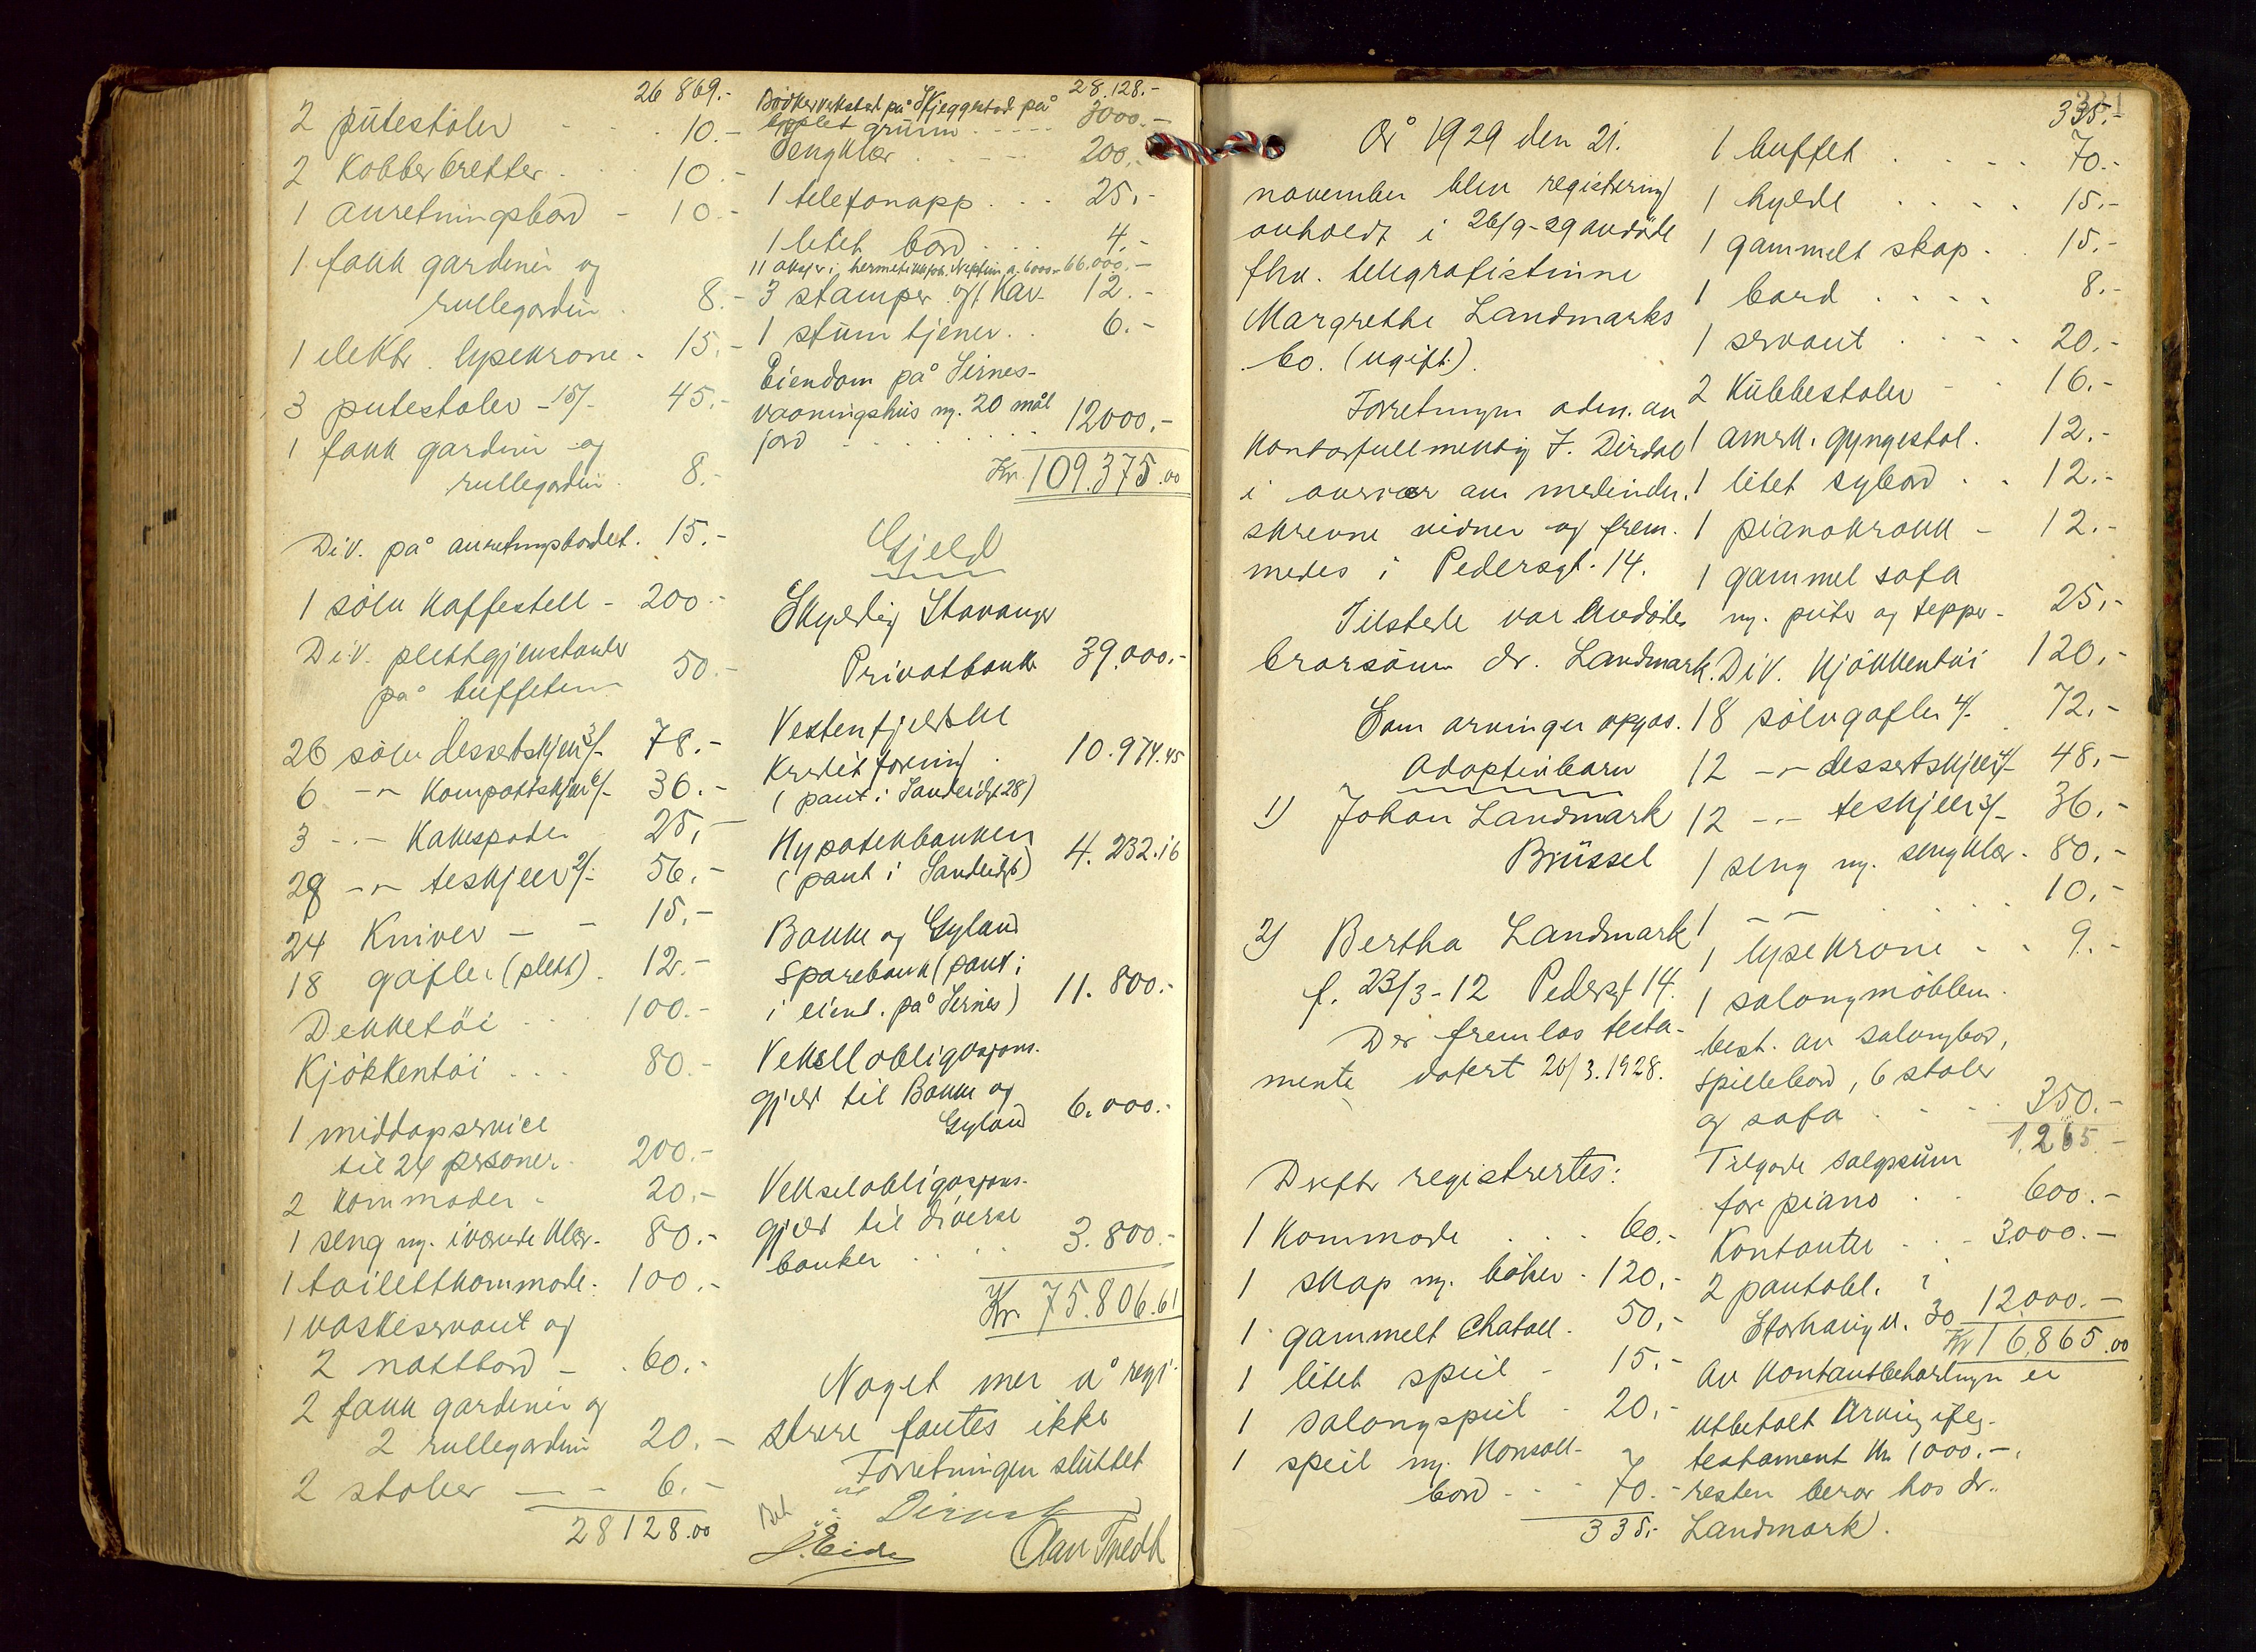 26 869.-
2 putestoler - - . 10.-
2 Kobberbretter . . 10.-
1 anretningsbord - 10.-
1 fakk gardiner og
rullegardin . 8.-
1 elektr. lysekrone . 15.-
3 putestoler - 15/- 45.-
1 fakk gardiner og
rullegardin . 8.-
Div. på anretningsbordet . 15.-
1 sølv Kaffestell - 200.-
Div. plettgjenstander
på buffeten 50.-
26 sølv dessertskjeer 3/- 78.-
6 -"- Kompottskjeer 6/- 36.-
3 -"- Kakespader 25,-
28 -"- teskjeer 2/- 56.-
24 Kniver - - 15.-
18 gafler (plett) . 12.-
Dekketøi . . 100.-
Kjøkkentøi . . . 80.-
1 middagsservice
til 24 personer . 200.-
2 Kommoder - 20.-
1 seng m. iværende klær . 80.-
1 toilettkommode . 100.-
1 vaskeservant og
2 nattbord - . 60.-
2 fakk gardiner og
2 rullegardin 20.-
2 stoler - - 6.-
28128.00
28.128.-
Bødkerverksted på Skjeggestad på
bygslet grunn . - - - - 3000.-
Sengklær . . - - - 200.-
1 telefonapp. . . . 25.-
1 litet bord . . . 4.-
11 aksjer i hermetikkfabr. Neptun a. 6000.- 66.000.-
3 stamper og 1 kar - 12.-
1 stum tjener . . 6.-
Eiendom på Sirnes -
vaaningshus m. 20 mål
jord - - . . . . . 12000.-
Kr. 109.375.00
Gjeld
Skyldig Stavanger
Privatbank 39.000.-
Vestenfjeldske
Kreditforening . 10.974.45
(pant i Sandeidgt 28)
Hypotekbanken
(pant i Sandeidgt) 4.232.16
Bakke og Gyland
Sparebank (pant i
i eiend. på Sirnes) 11.800.-
Veksellobligasjons-
gjeld til Bakke og
Gyland 6.000.-
Vekselobligasjons-
gjeld til diverse
banker . . . . 3.800.-
Kr. 75.806.61
Noget mer å regi-
strere fantes ikke
Forretningen sluttet
Dirdal
J. Eide
335.-
År 1929 den 21.
november blev registrering
avholdt i 26/9-29 avdøde
fhv. telegrafistinne
Margrethe Landmarks
bo. (ugift).
Forretningen adm. av
Kontorfullmektig F. Dirdal
i overvær av medunder-
skrevne vidner og frem-
medes i Pedersgt. 14.
Tilstede var avdødes
brorsønn dr. Landmark.
Som arvinger opgas.
Adoptivbarn
1) Johan Landmark
Brüssel
2) Bertha Landmark
f. 23/3-12 Pedersgt 14.
Der fremlas testa-
mente datert 26/3.1928.
Derefter registrertes:
1 Kommode . . . 60.-
1 skap m. bøker . 120.-
1 gammelt Chatoll . 50.-
1 litet speil - 15.-
1 salongspeil - 20.-
1 speil m. Konsoll-
bord - - - 70.-
335.-
1 buffet . . . . 70.-
1 hylde . . . . 15.-
1 gammelt skap . . 15.-
1 bord . . . . 8.-
1 servant . . . . 20.-
2 Kubbestoler - - 16.-
1 amrk. gyngestol . 12.-
1 litet sybord . . 12.-
1 pianokrakk - 12.-
1 gammel sofa
m. puter og tepper - 25.-
Div. Kjøkkentøi 120.-
18 sølvgafler 4/- . 72.-
12 -"- dessertskjeer 4/- 48.-
12 -"- teskjeer 3/- 36.-
1 seng m. sengklær . 80.-
1 - - . . . 10.-
1 lysekrone - . 9.-
1 salongmøblem.
best. av salongbord,
spillebord, 6 stoler
og sofa . - - - 350.-
1.265.-
Tilgode salgssum
for piano . . 600.-
Kontanter . . - 3.000.-
2 pantobl. i
Storhaugv. 30 12.000.-
Kr 16.865.00
Av Kontantbeholdngn er
utbetalt arving ifølg.
testament kr 1000.-,
resten beror hos dr.
Landmark.